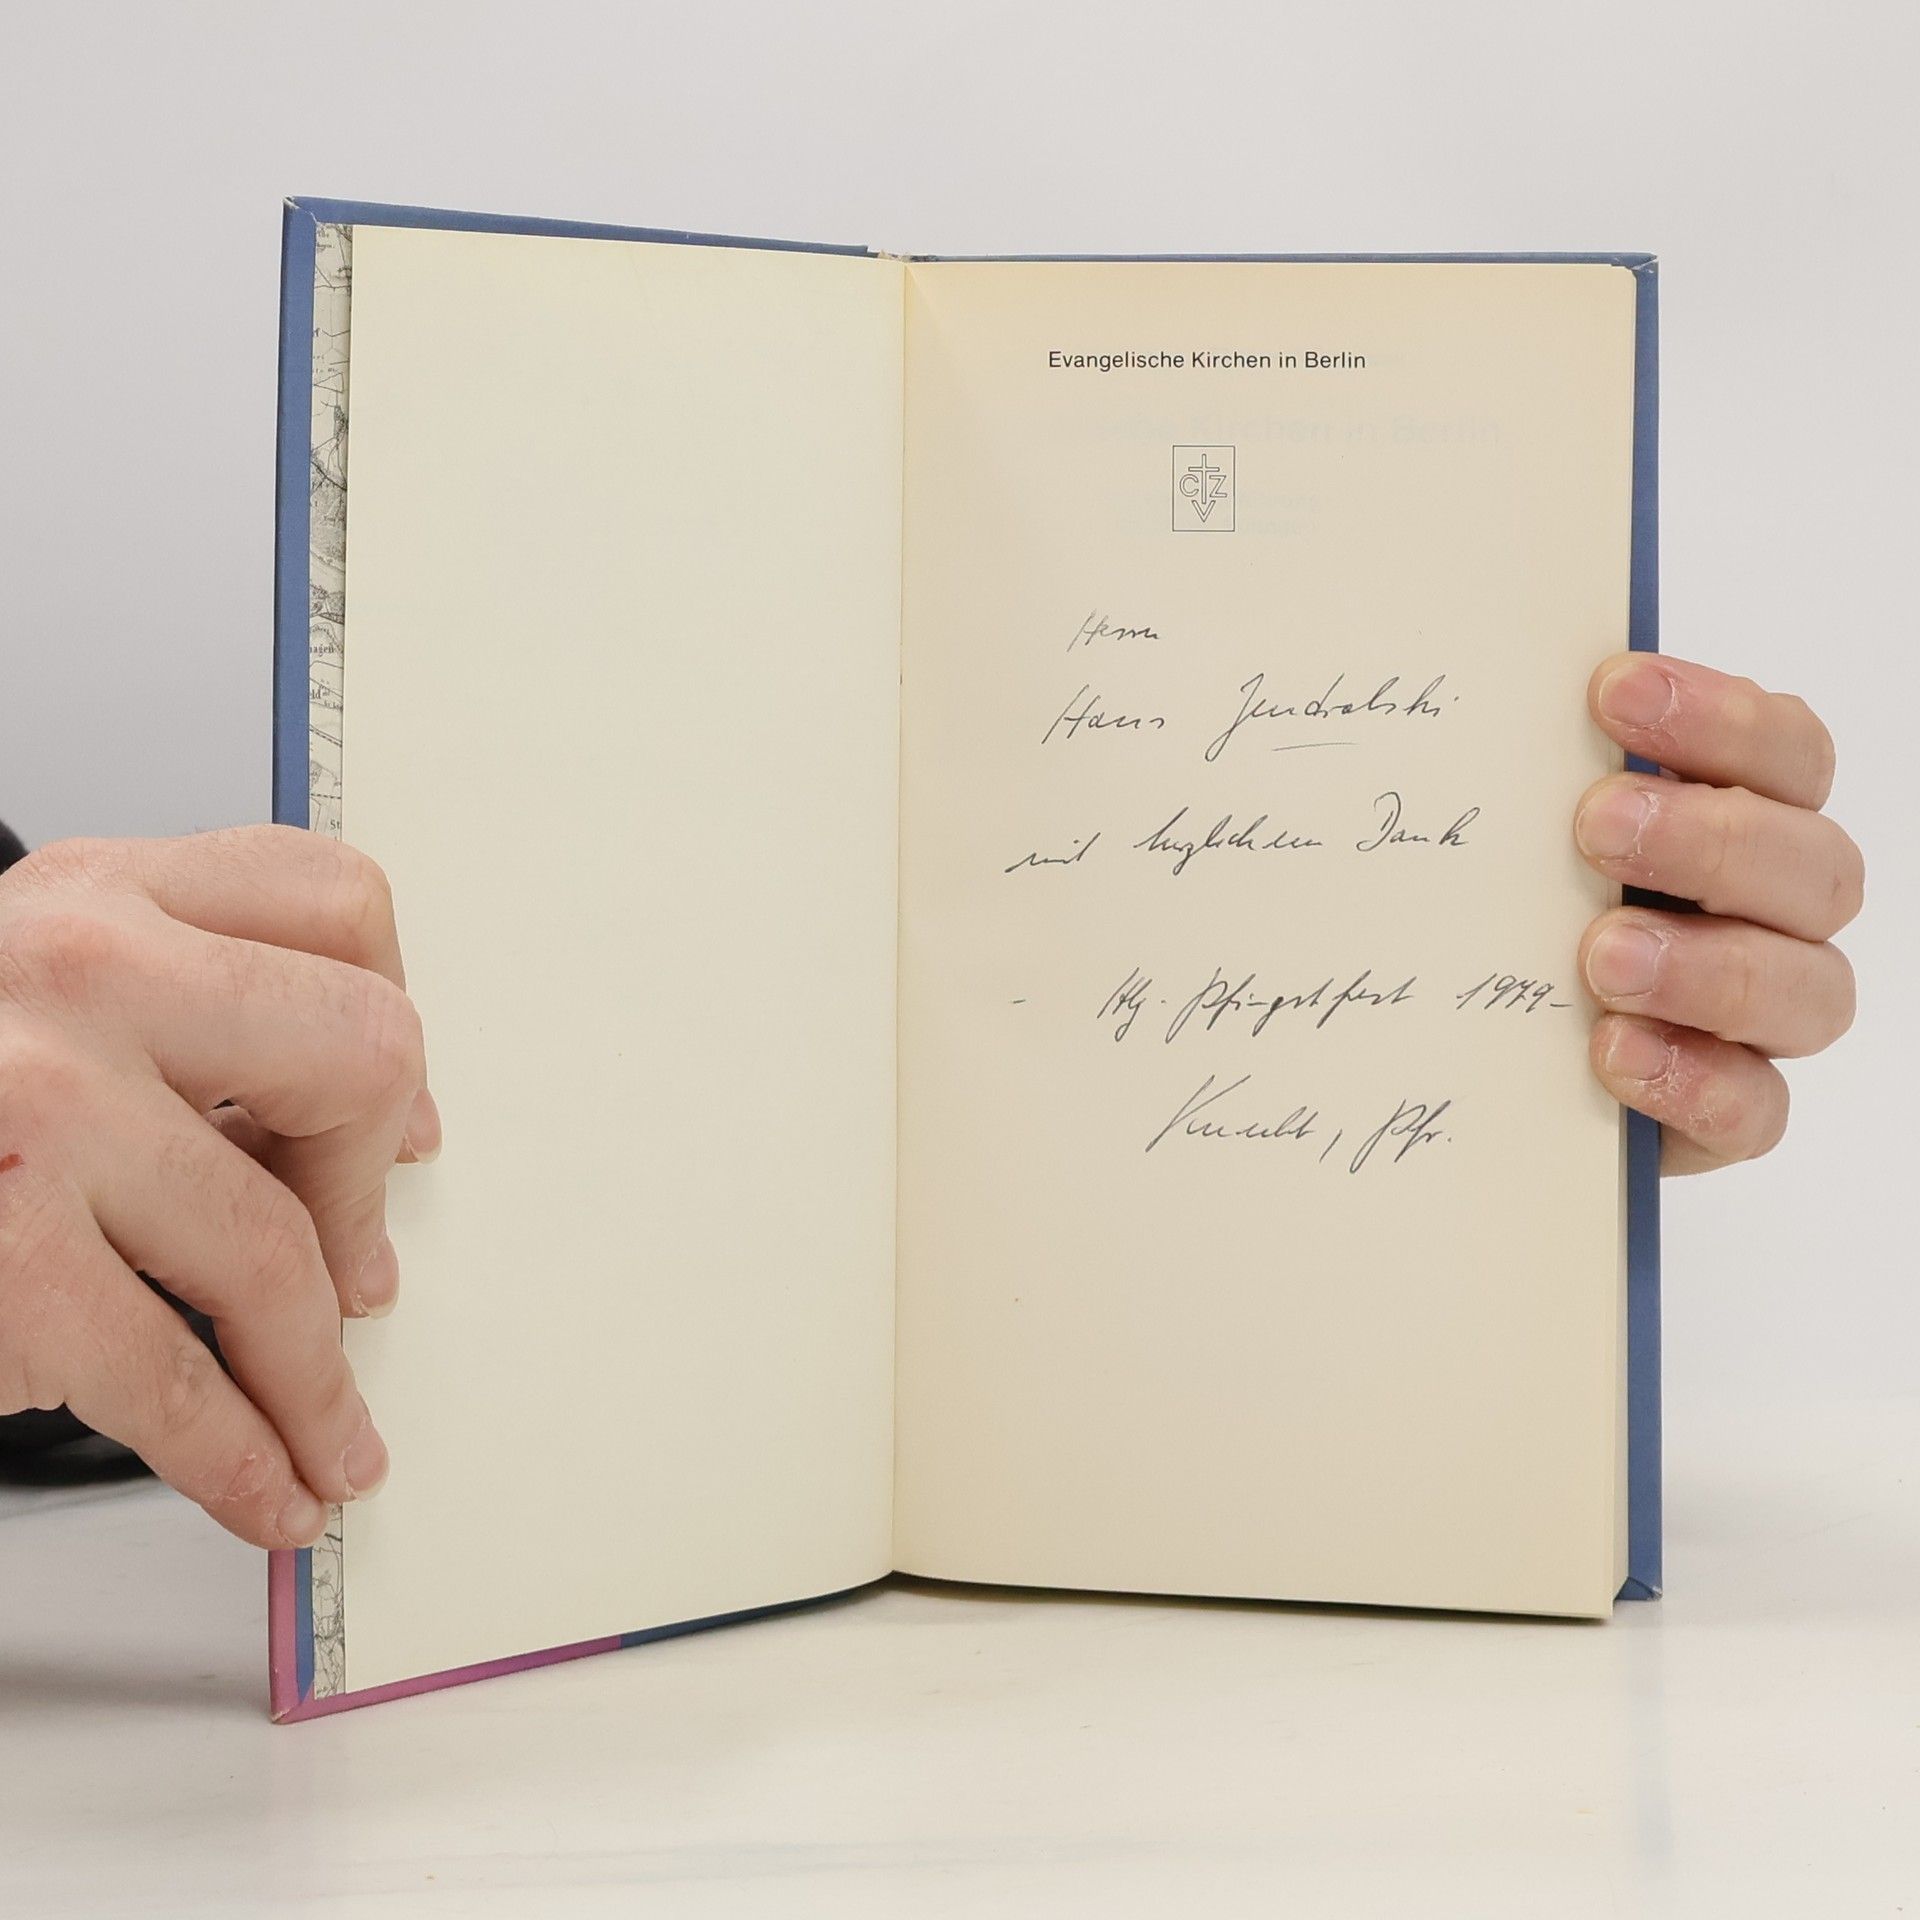 Evangelische Kirchen in Berlin
CZV
Herrn
Hans Jendralski
mit herzlichem Dank
- Hlg. Pfingstfest 1979-
Knecht, Pfr.